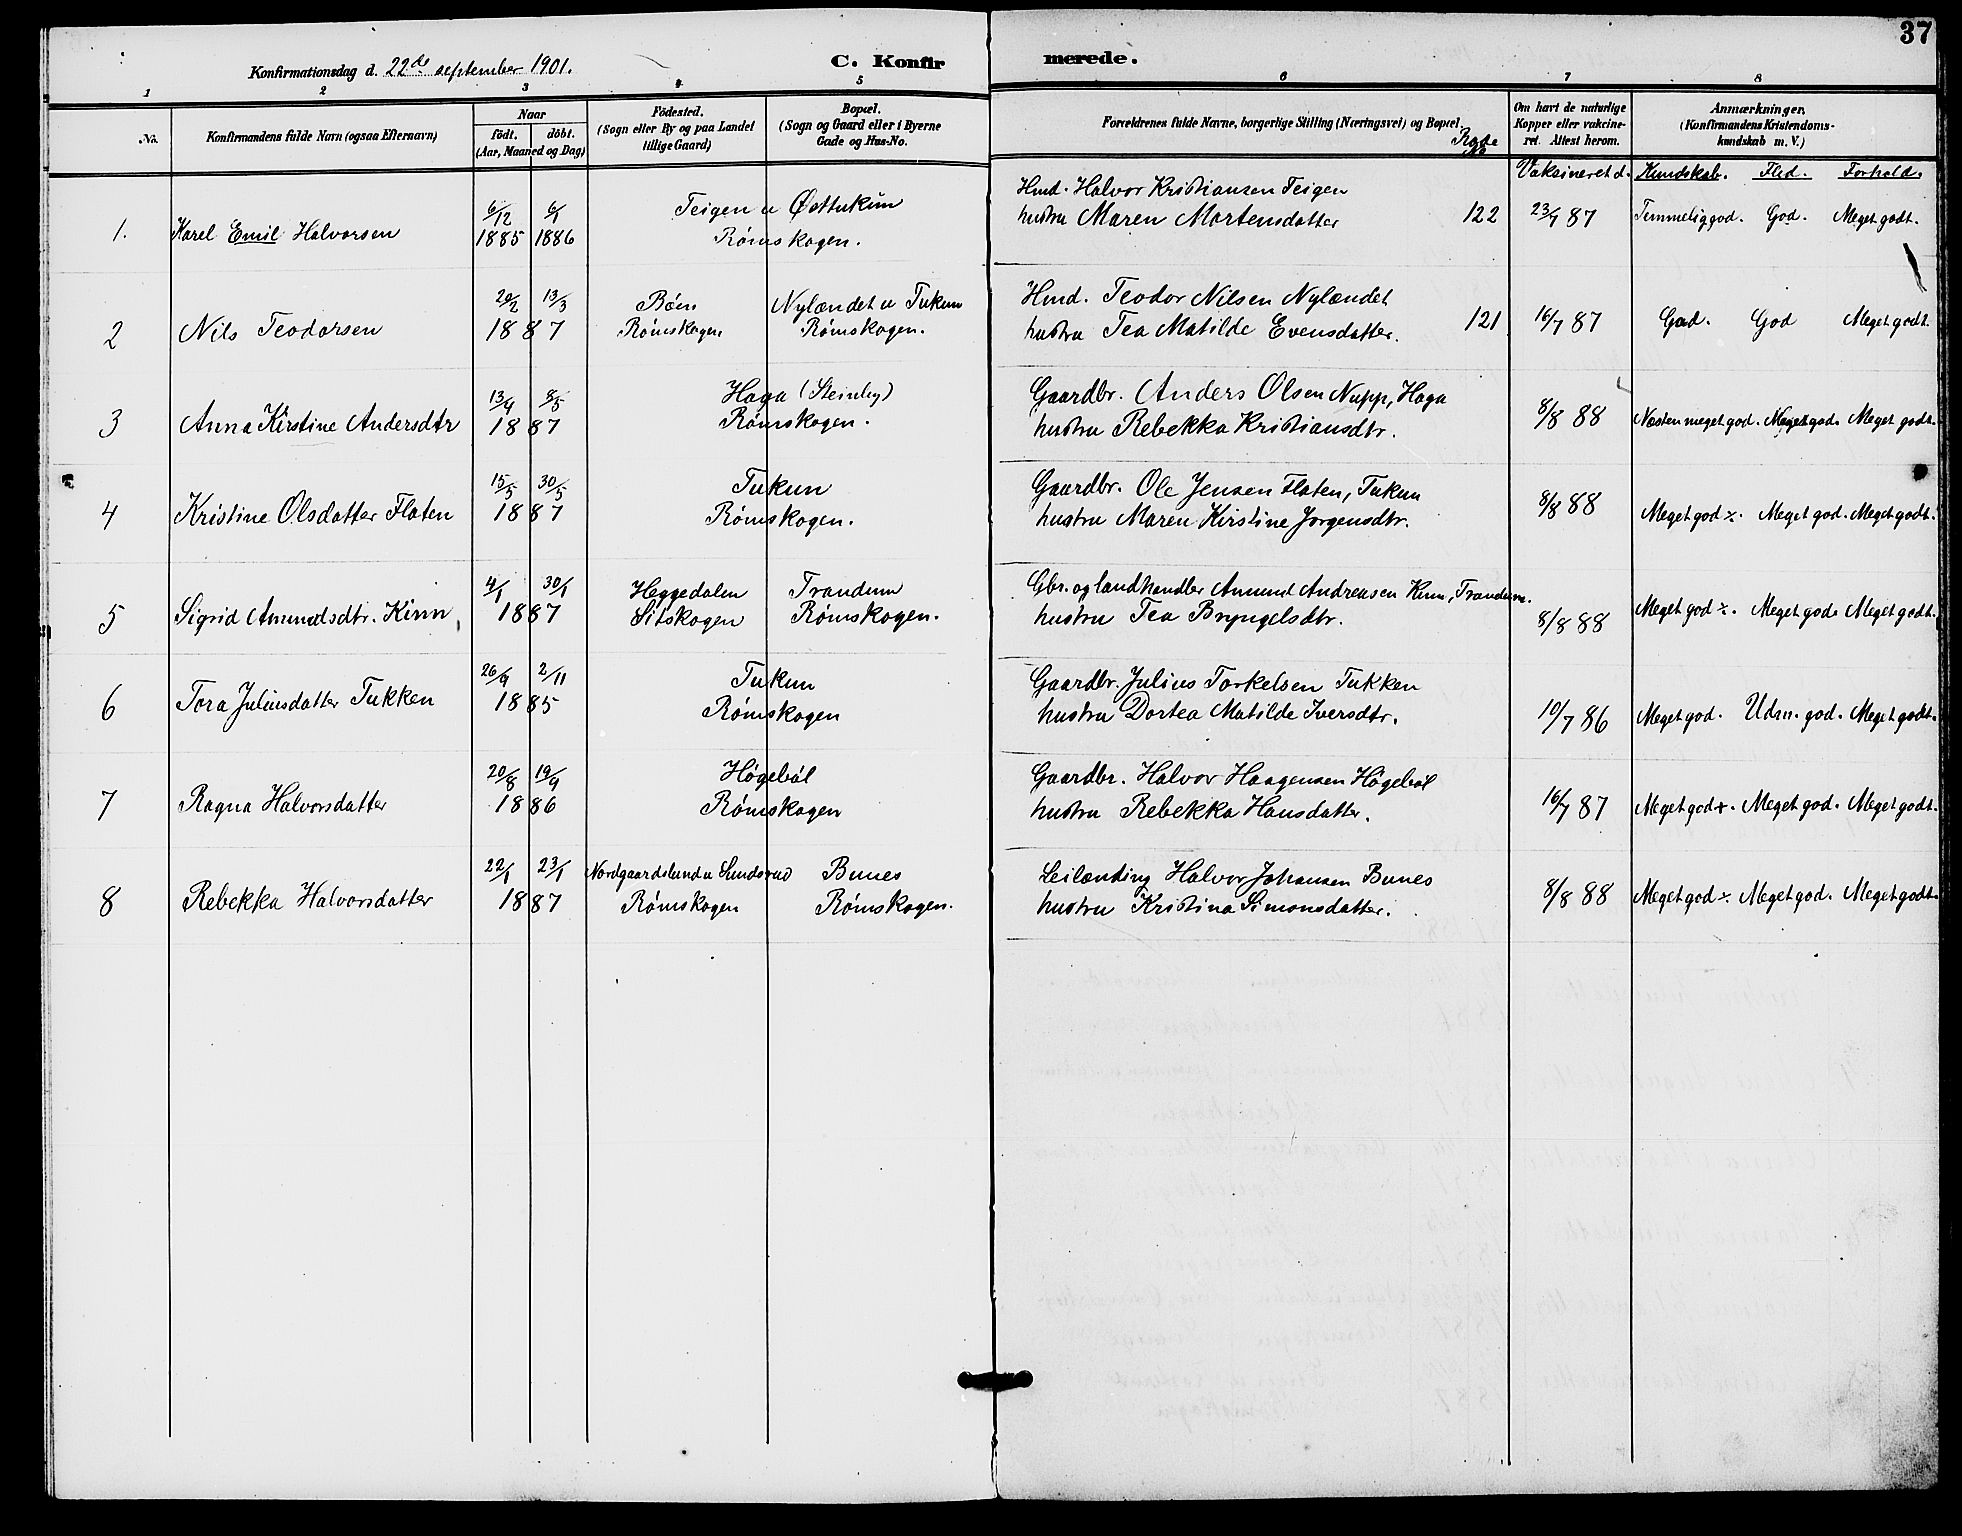 37
Konfirmationsdag d. 22de september 1901.
C. Konfirmerede.
1 2 3 4 5 6 7 8
No.
Konfirmandens fulde Navn (ogsaa Efternavn)
Naar
födt. döbt.
(Aar, Maaned og Dag)
Födested.
(Sogn eller By og paa Landet
tillige Gaard)
Bopæl.
(Sogn og Gaard eller i Byerne
Gade og Hus-No.
Forældrenes fulde Navne, borgerlige Stilling (Næringsvei) og Bopæl.
Rode
No
Om havt de naturlige
Kopper eller vakcine-
ret. Attest herom.
Vaksineret d.
Anmærkninger.
(Konfirmandens Kristendoms-
kundskab m. V.)
Kundskab. Flid. Forhold.
1. Karel Emil Halvorsen 6/12 1885 6/1 1886
Teigen u Østtukun
Rømskogen.
Hmd. Halvor Kristiansen Teigen
hustru Maren Martensdatter 122 23/7 87 Temmelig god. God. Meget godt.
2 Nils Teodorsen 20/2 13/3 1887
Bøen Nylændet u Tukun
Rømskogen Rømskogen.
Hmd. Teodor Nilsen Nylændet
hustru Tea Matilde Evensdatter. 121 16/7 87 God. God Meget godt.
3 Anna Kirstine Andersdtr 13/4 8/5 1887
Haga (Steinby)
Rømskogen.
Gaardbr. Anders Olsen Nupp, Haga
hustru Rebekka Kristiansdtr. 8/8 88 Næsten meget god. Meget god. Meget godt.
4 Kristine Olsdatter Flaten 15/5 30/5 1887
Tukun
Rømskogen.
Gaardbr. Ole Jensen Flaten, Tukun
hustru Maren Kirstine Jorgensdtr. 8/8 88 Meget god ÷. Meget god. Meget godt.
5 Sigrid Amundsdtr. Kinn 4/1 30/1 1887
Heggedalen Trandum
Sitskogen Rømskogen.
Gbr. og landhandler Amund Andreasen Kinn, Trandum.
hustru Tea Bryngelsdtr. 8/8 88 Meget god ÷. Meget god. Meget godt.
6 Tora Juliusdatter Tukken 26/9 2/11 1885
Tukun
Rømskogen
Gaardbr. Julius Torkelsen Tukken
hustru Dortea Matilde Iversdtr. 10/7 86 Meget god. Udm. god. Meget godt.
7 Ragna Halvorsdatter 20/8 19/9 1886
Høgebøl
Rømskogen
Gaardbr. Halvor Haagensen Høgebøl
hustru Rebekka Hansdatter. 16/7 87 Meget god +. Meget god. Meget godt.
8 Rebekka Halvorsdatter 22/1 23/1 1887
Nordgaardslund u Sundsrud Bunes
Rømskogen Rømskogen.
Leilænding Halvor Johansen Bunes
hustru Kristina Simonsdatter. 8/8 88 Meget god ÷. Meget god. Meget godt.